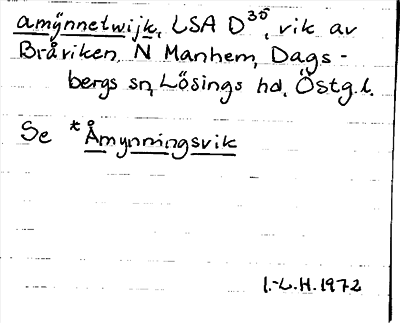 amÿnnetwijk, LSA D³⁵, vik av
Bråviken N Manhem, Dags-
bergs sn, Lösings hd, Östg.l.
Se *Åmynningsvik
I.-L.H. 1972